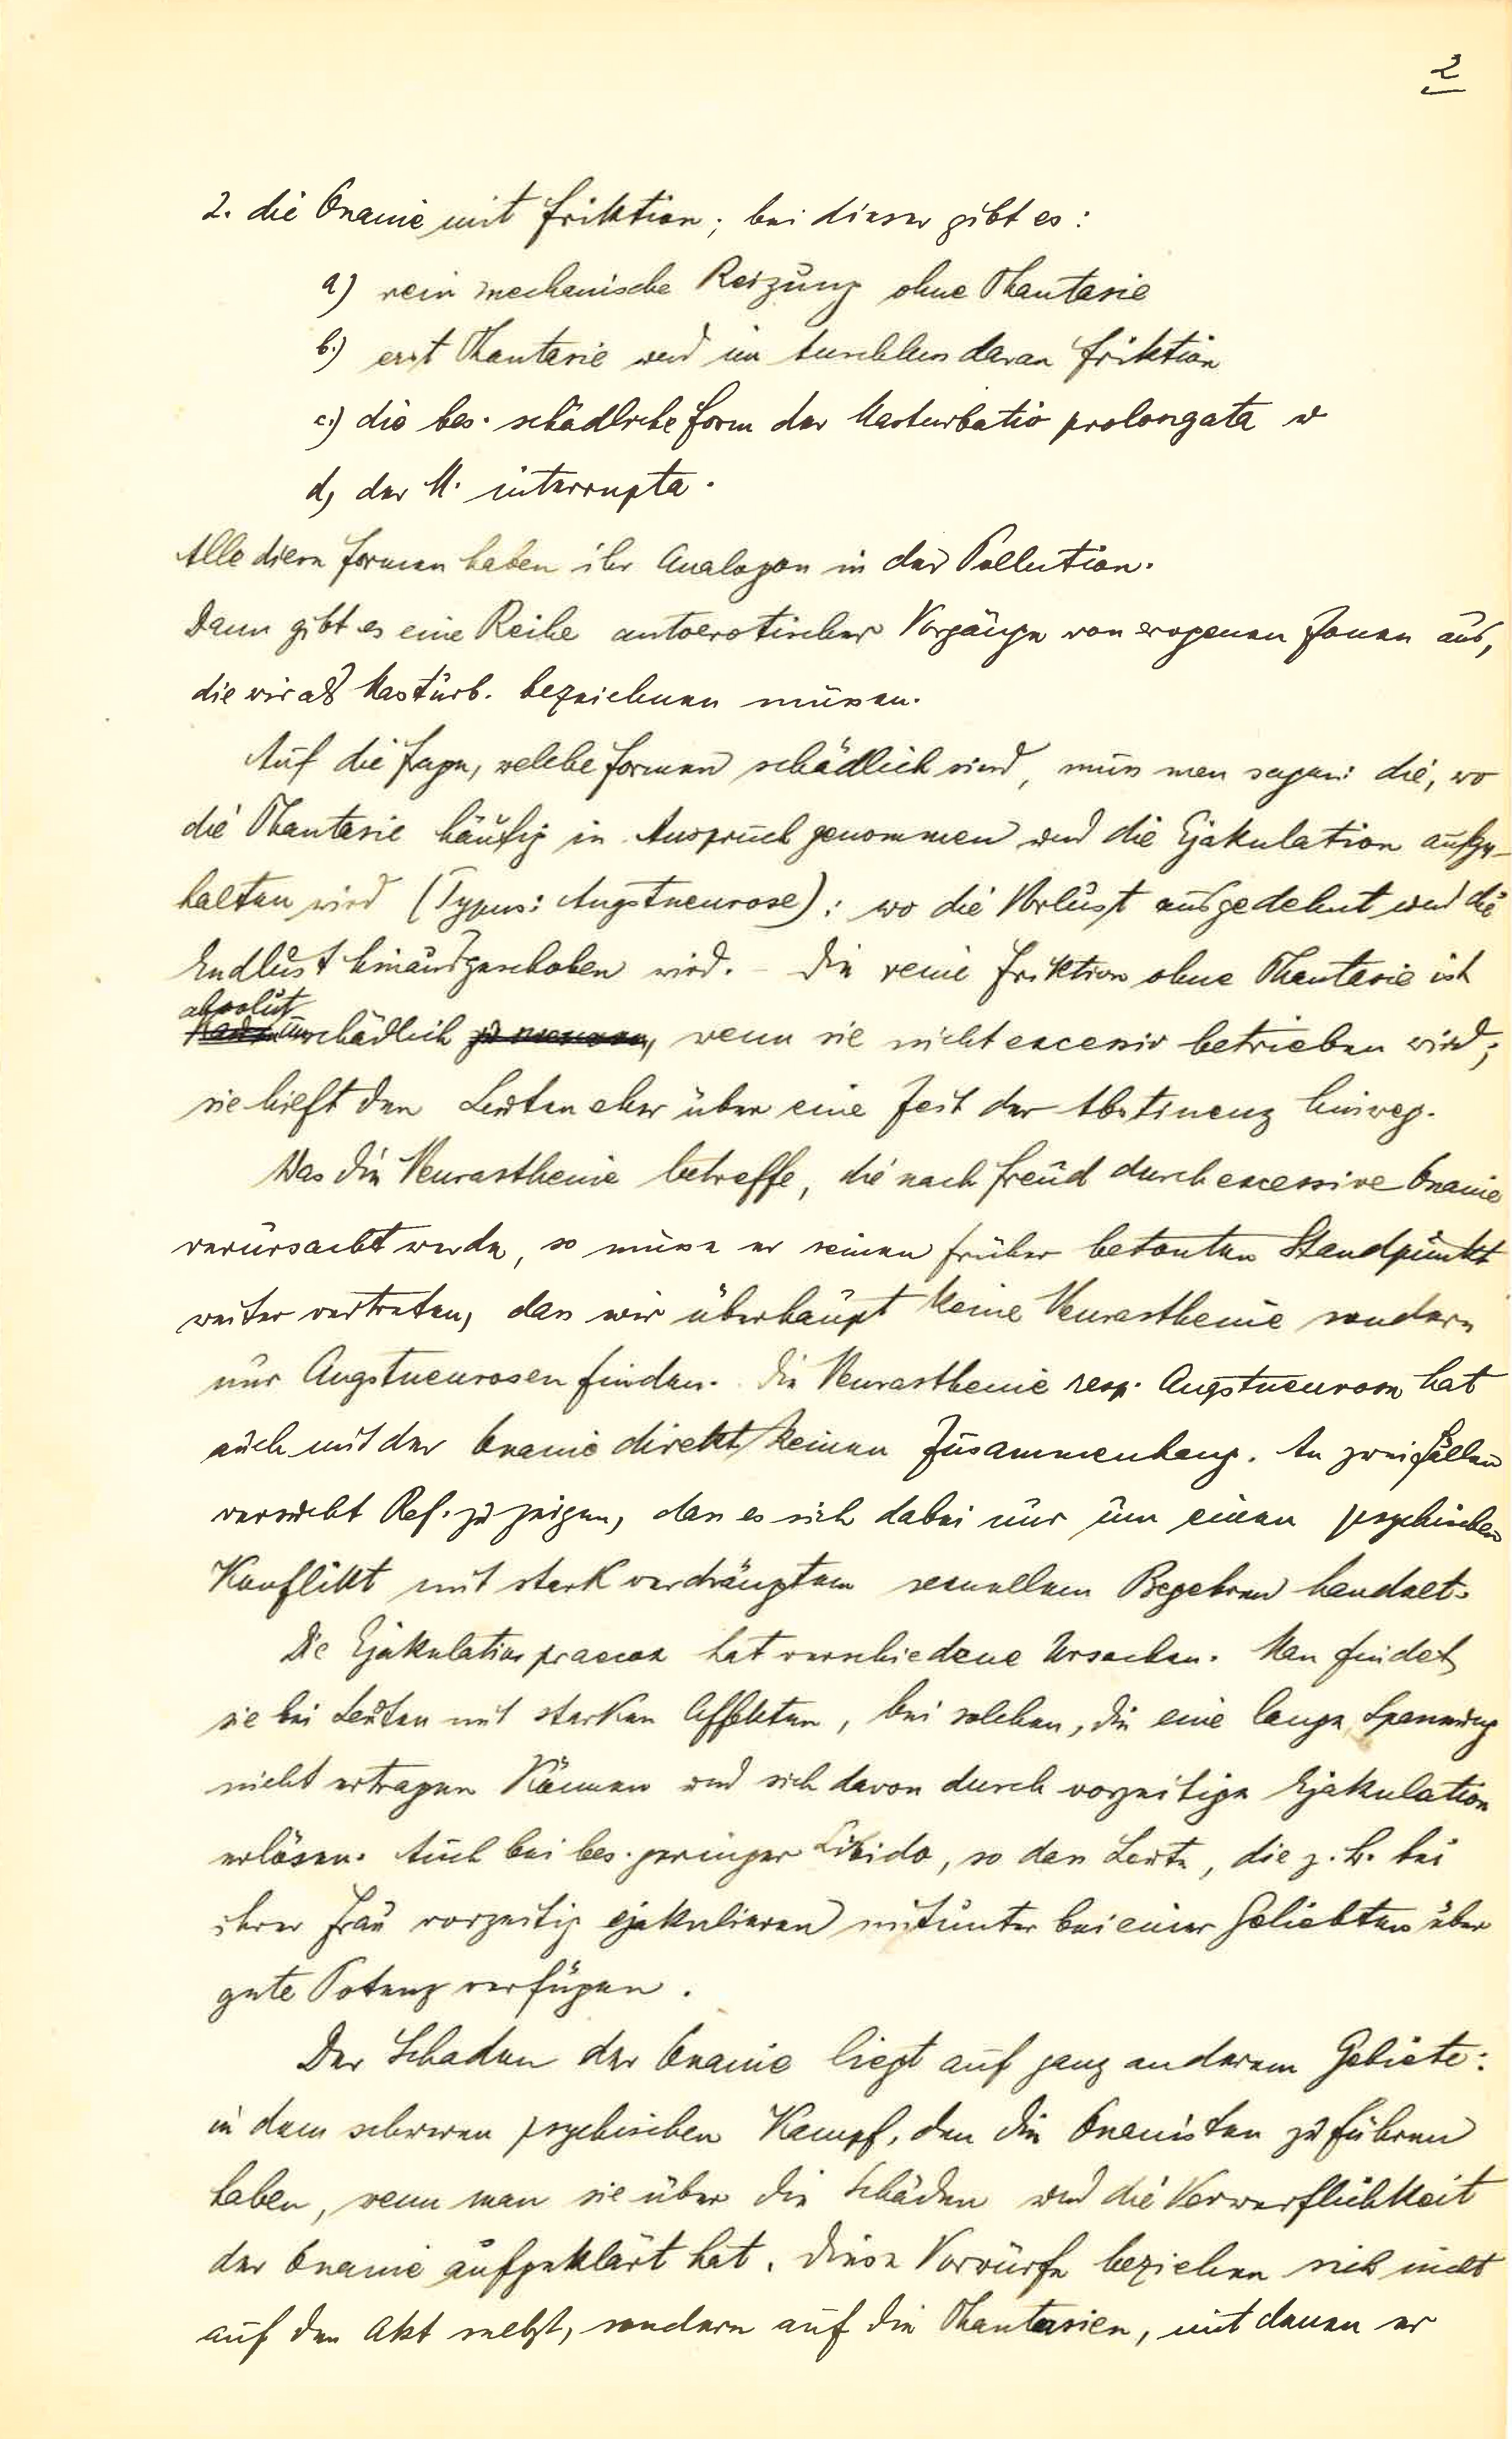 2
2. die Onanie mit Friktion; bei dieser gibt es:
a) rein mechanische Reizung ohne Phantasie
b.) erst Phantasie und im Anschluss daran Friktion
c.) die bes. schädliche Form der Masturbatio prolongata u
d, der M. interrupta.
Alle diese Formen haben ihr Analogon in der Pollution.
Dann gibt es eine Reihe autoerotischer Vorgänge von erogenen Zonen aus,
die wir als Masturb. bezeichnen müssen.
Auf die Frage, welche Formen schädlich sind, muss man sagen: die, wo
die Phantasie häufig in Anspruch genommen und die Ejakulation aufge-
halten wird (Typus: Angstneurose); wo die Vorlust ausgedehnt und die
Endlust hinausgeschoben wird. – Die reine Friktion ohne Phantasie ist
absolut
unschädlich, wenn sie nicht excessiv betrieben wird;
sie hielft den Leuten eher über eine Zeit der Abstinenz hinweg.
Was die Neurasthenie betreffe, die nach Freud durch excessive Onanie
verursacht werde, so müsse er seinen früher betonten Standpunkt
weiter vertreten, dass wir überhaupt keine Neurasthenie sondern
nur Angstneurosen finden. Die Neurasthenie resp. Angstneurose hat
auch mit der Onanie direkt keinen Zusammenhang. An zwei Fällen
versucht Ref. zu zeigen, dass es sich dabei nur um einen psychischen
Konflikt mit stark verdrängtem sexuellem Begehren handelt.
Die Ejakulatio praecox hat verschiedene Ursachen. Man findet
sie bei Leuten mit starken Affekten, bei solchen, die eine lange Spannung
nicht ertragen können und sich davon durch vorzeitige Ejakulation
erlösen. Auch bei bes. geringer Libido, so dass Leute, die z. B. bei
ihrer Frau vorzeitig ejakulieren mitunter bei einer Geliebten über
gute Potenz verfügen.
Der Schaden der Onanie liegt auf ganz anderem Gebiete:
in dem schweren psychischen Kampf, den die Onanisten zu führen
haben, wenn man sie über die Schäden und die Verwerflichkeit
der Onanie aufgeklärt hat. Diese Vorwürfe beziehen sich nicht
auf den Akt selbst, sondern auf die Phantasien, mit denen er